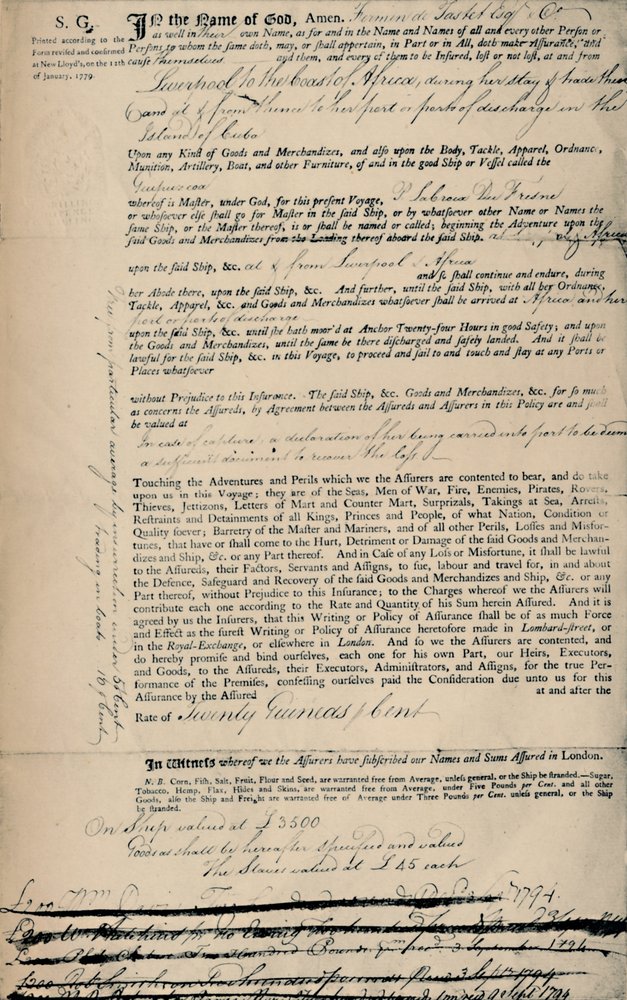 S. G.
Printed according to the
Form revised and confirmed
at New Lloyd's, on the 12th
of January, 1779.
IN the Name of God, Amen. Fermin de Tastet Esqr & Co.
as well in Their own Name, as for and in the Name and Names of all and every other Person or
Persons to whom the same doth, may, or shall appertain, in Part or in All, doth make Assurance, and
cause themselves and them, and every of them to be Insured, lost or not lost, at and from
Liverpool to the Coast of Africa, during her stay & trade there
and at & from thence to her port or ports of discharge in the
Island of Cuba
Upon any Kind of Goods and Merchandizes, and also upon the Body, Tackle, Apparel, Ordnance,
Munition, Artillery, Boat, and other Furniture, of and in the good Ship or Vessel called the
Guipuzcoa
whereof is Master, under God, for this present Voyage, P Labroix Du Fresne
or whosoever else shall go for Master in the said Ship, or by whatsoever other Name or Names the
same Ship, or the Master thereof, is or shall be named or called; beginning the Adventure upon the
said Goods and Merchandizes from the Loading thereof aboard the said Ship. Africa
upon the said Ship, &c. at & from Liverpool & Africa
and so shall continue and endure, during
her Abode there, upon the said Ship, &c. And further, until the said Ship, with all her Ordnance,
Tackle, Apparel, &c. and Goods and Merchandizes whatsoever shall be arrived at Africa and her
port or ports of discharge
upon the said Ship, &c. until she hath moor'd at Anchor Twenty-four Hours in good Safety; and upon
the Goods and Merchandizes, until the same be there discharged and safely landed. And it shall be
lawful for the said Ship, &c. in this Voyage, to proceed and sail to and touch and stay at any Ports or
Places whatsoever
without Prejudice to this Insurance. The said Ship, &c. Goods and Merchandizes, &c. for so much
as concerns the Assureds, by Agreement between the Assureds and Assurers in this Policy are and shall
be valued at
In case of capture, a declaration of her being carried into port to be deem
a sufficient document to recover the loss
Touching the Adventures and Perils which we the Assurers are contented to bear, and do take
upon us in this Voyage; they are of the Seas, Men of War, Fire, Enemies, Pirates, Rovers,
Thieves, Jettizons, Letters of Mart and Counter Mart, Surprizals, Takings at Sea, Arrests,
Restraints and Detainments of all Kings, Princes and People, of what Nation, Condition or
Quality soever; Barretry of the Master and Mariners, and of all other Perils, Losses and Misfor-
tunes, that have or shall come to the Hurt, Detriment or Damage of the said Goods and Merchan-
dizes and Ship, &c. or any Part thereof. And in Case of any Loss or Misfortune, it shall be lawful
to the Assureds, their Factors, Servants and Assigns, to sue, labour and travel for, in and about
the Defence, Safeguard and Recovery of the said Goods and Merchandizes and Ship, &c. or any
Part thereof, without Prejudice to this Insurance; to the Charges whereof we the Assurers will
contribute each one according to the Rate and Quantity of his Sum herein Assured. And it is
agreed by us the Insurers, that this Writing or Policy of Assurance shall be of as much Force
and Effect as the surest Writing or Policy of Assurance heretofore made in Lombard-street, or
in the Royal-Exchange, or elsewhere in London. And so we the Assurers are contented, and
do hereby promise and bind ourselves, each one for his own Part, our Heirs, Executors,
and Goods, to the Assureds, their Executors, Administrators, and Assigns, for the true Per-
formance of the Premises, confessing ourselves paid the Consideration due unto us for this
Assurance by the Assured at and after the
Rate of Twenty Guineas p Cent
Free from particular average by insurrection under 5 p Cent
trading in boat 10 p Cent
In Witness whereof we the Assurers have subscribed our Names and Sums Assured in London.
N. B. Corn, Fish, Salt, Fruit, Flour and Seed, are warranted free from Average, unless general, or the Ship be stranded.—Sugar,
Tobacco, Hemp, Flax, Hides and Skins, are warranted free from Average, under Five Pounds per Cent. and all other
Goods, also the Ship and Freights are warranted free of Average under Three Pounds per Cent. unless general, or the Ship
be stranded.
On Ship valued at £3500
Goods as shall be hereafter specified and valued
The Slaves valued at £45 each
£200 Wm 1794
£200
Two Hundred Pounds 3 September 1794
£200 Smith Two hundred pounds 3 Sept 1794
Sept 1794